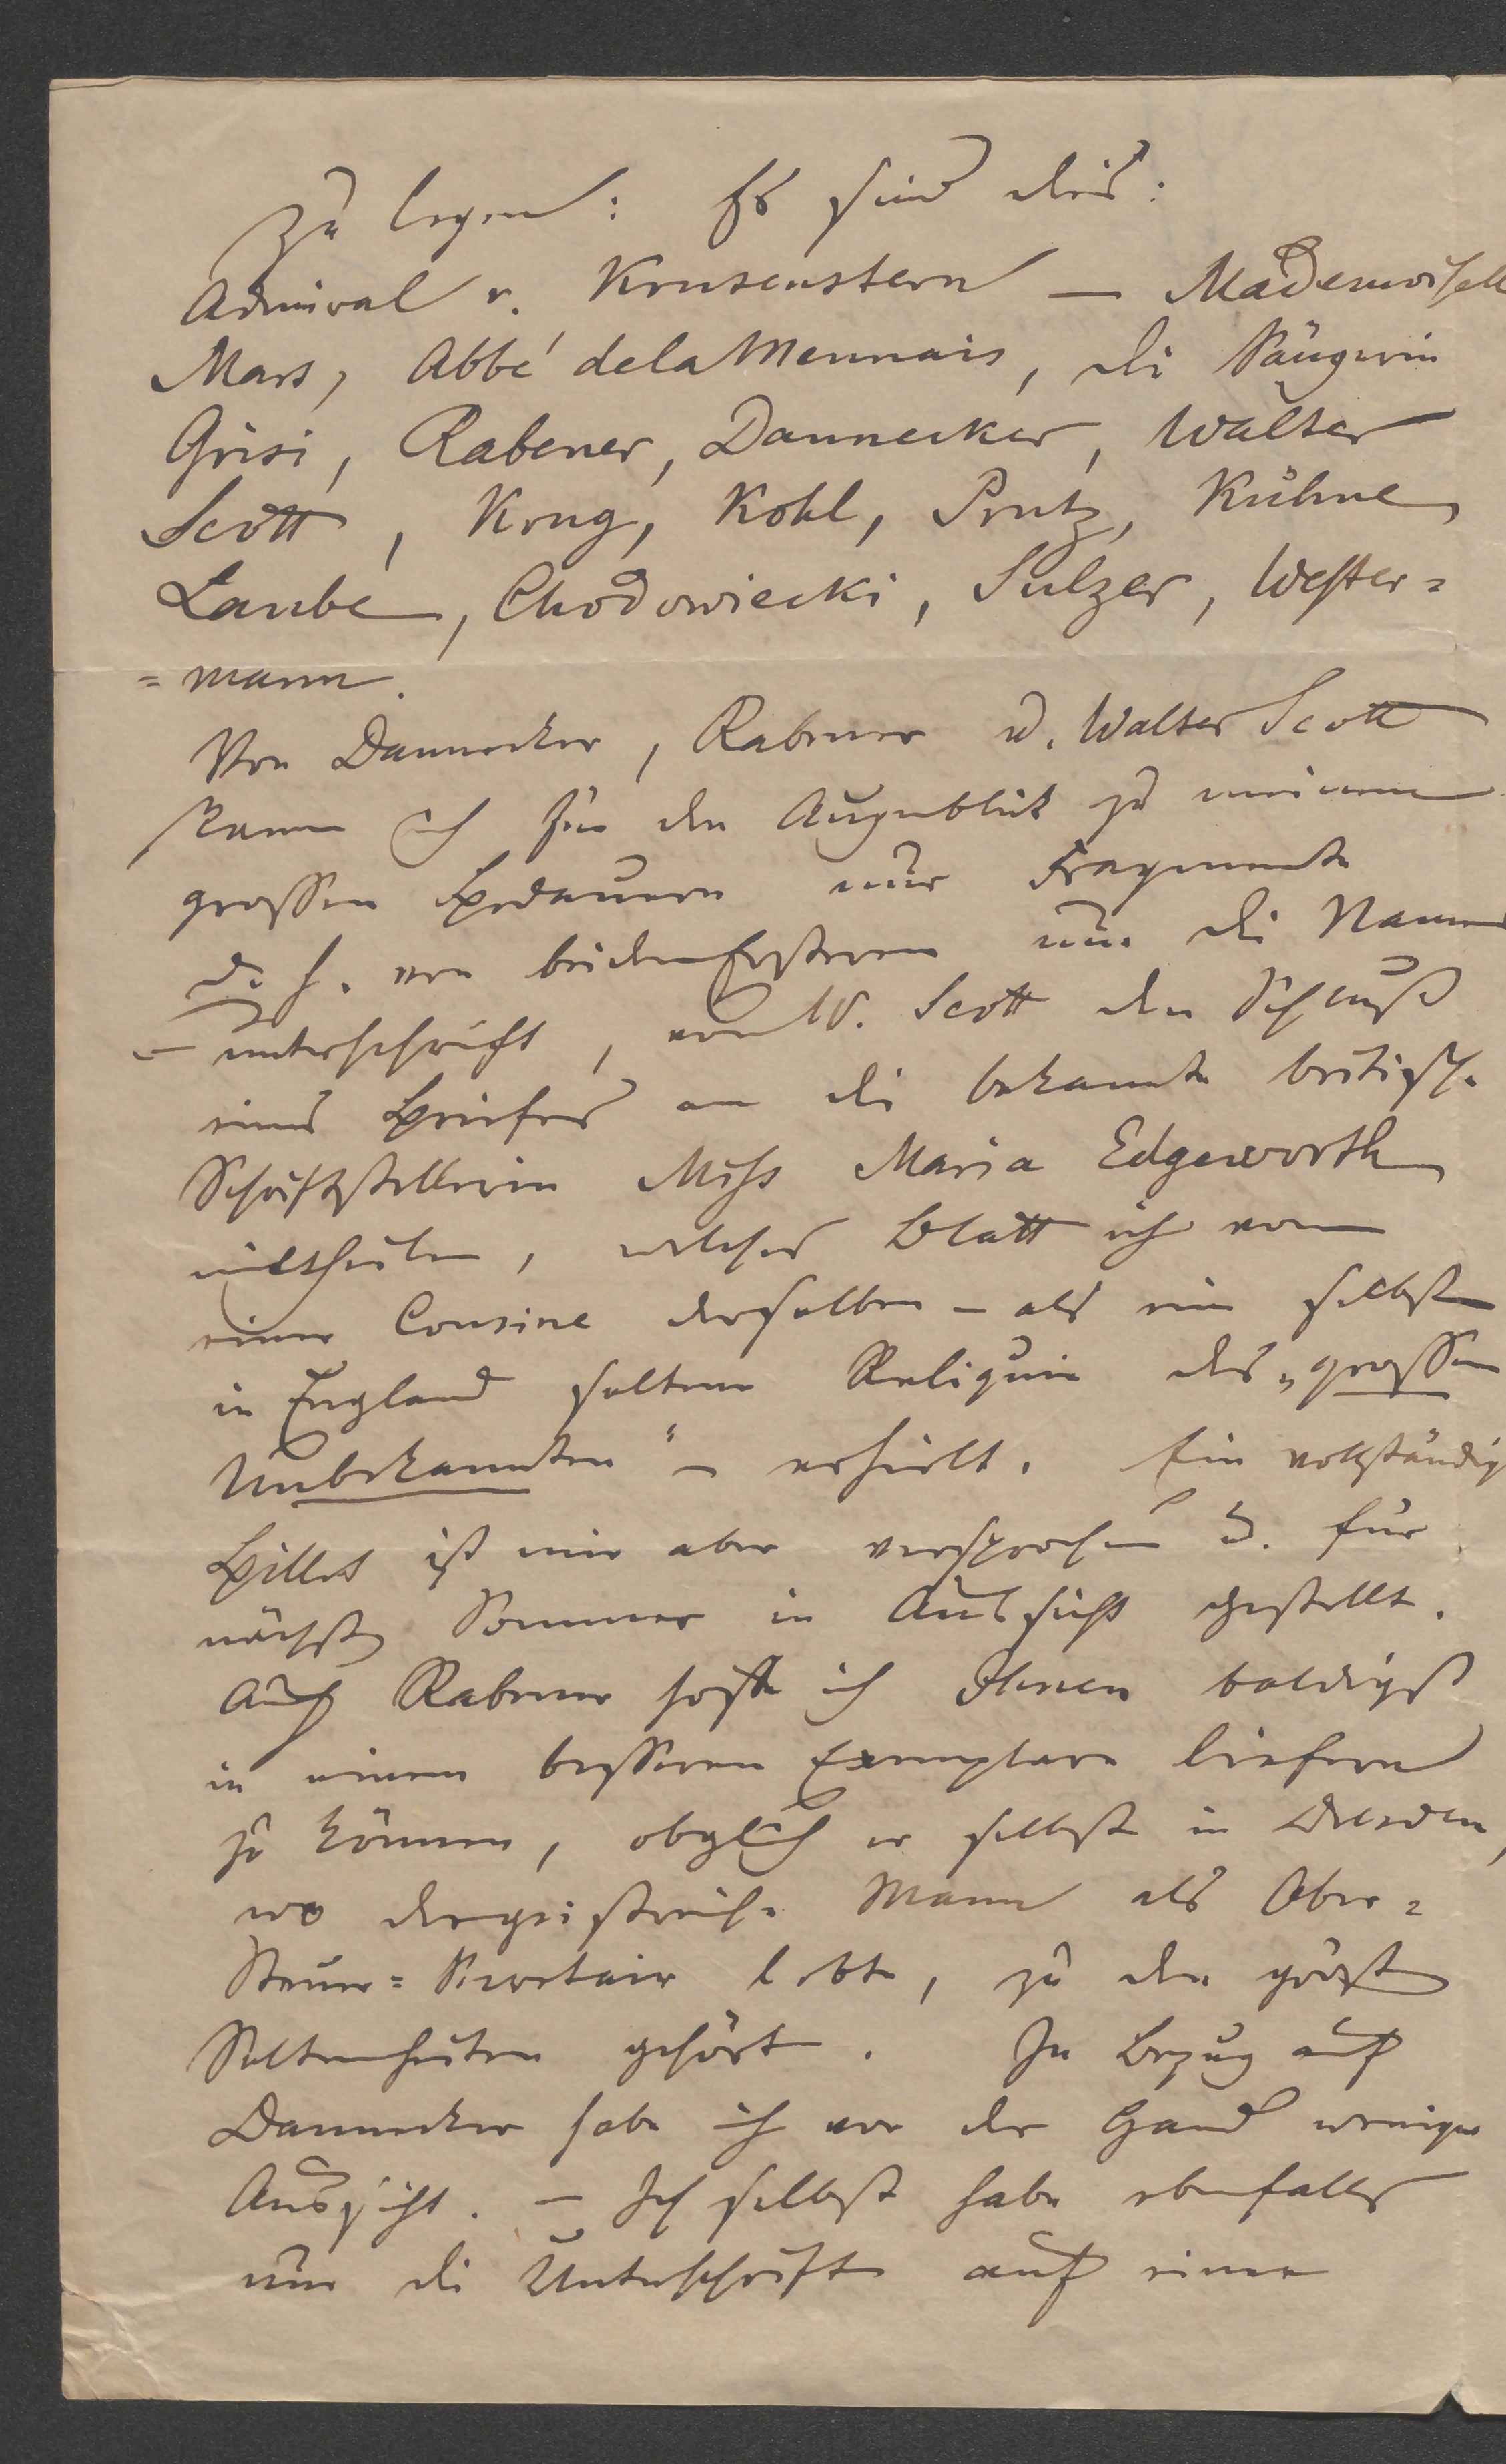 zu legen: Es sind dies:
Admiral v. Krusenstern — Mademoisell
Mars, Abbé de la Mennais, die Sängerin
Grisi, Rabener, Dannecker, Walter
Scott, Krug, Kohl, Prutz, Kühne,
Laube, Chodowiecki, Sulzer, Wester=
=mann.
Von Dannecker, Rabener u. Walter Scott
kann ich für den Augenblick zu meinem
grossen Bedauern nur Fragmente
d. h. von beiden Ersteren nur die Namens
- unterschrift, von W. Scott den Schluß
eines Briefes an die bekannte britische
Schriftstellerin Miss Maria Edgeworth
mittheilen, welches Blatt ich von
einer Cousine derselben – als eine selbst
in England seltene Reliquie des „grossen
Unbekannten" – erhielt. Ein vollständig
Billet ist mir aber versprochen u. für
nächsten Sommer in Aussicht gestellt.
Auch Rabener hoffe ich Ihnen baldigst
in einem besseren Exemplare liefern
zu können, obgleich er selbst in Dresden,
wo der geistreiche Mann als Ober=
Steuer=Secretair lebte, zu den größten
Seltenheiten gehört. In Bezug auf
Dannecker habe ich vor der Hand weniger
Aussicht. — Ich selbst habe ebenfalls
nur die Unterschrift auf einer